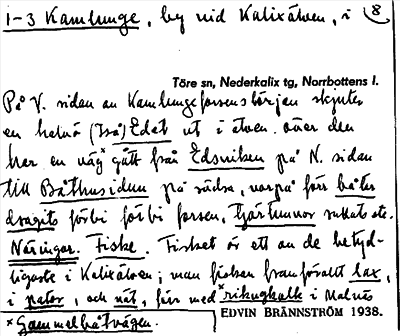 1-3 Kamlunge, by vid Kalixälven, i 8
Töre sn, Nederkalix tg, Norrbottens l.
På V. sidan av Kamlungeforsens början skjuter
en halvö (Isä) Edet ut i älven. över den
har en väg˟ gått från Edsviken på N. sidan
till Båthusidun på södra, varpå förr båtar
dragits förbi förbi forsen, tjärtunnor rullats etc.
Näringar. Fiske. Fisket är ett av de betyd-
ligaste i Kalixälven; man fiskar framförallt lax,
i pator, och nät, förr med ˟rikugkalk i Malnäs
˟Gammelbåtvägen.
EDVIN BRÄNNSTRÖM 1938.